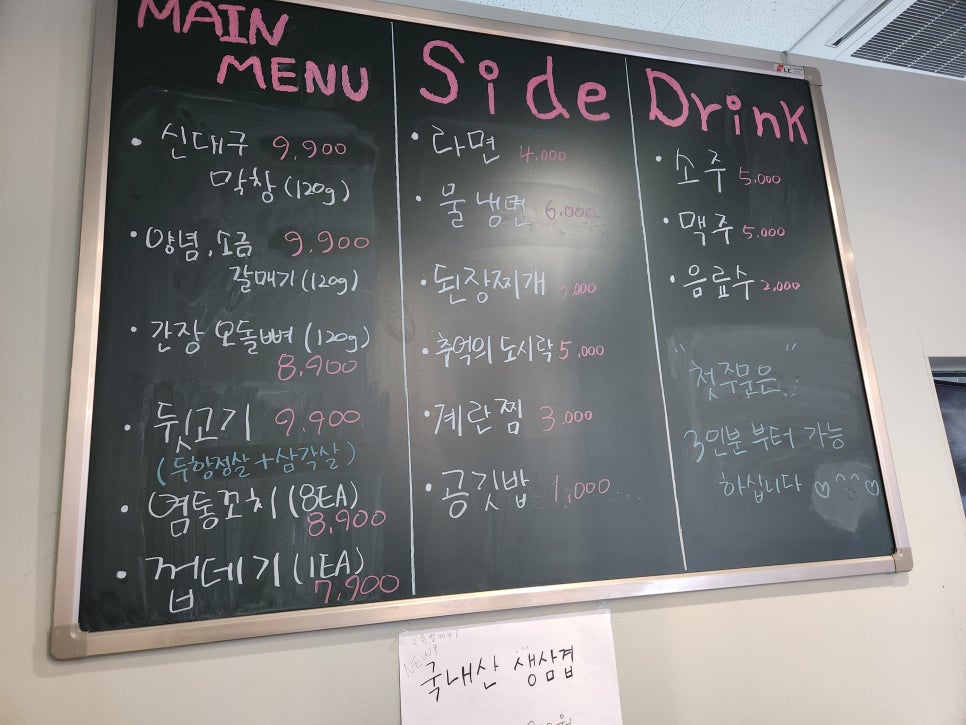 MAIN
MENU
• 신대구 9,900
막창 (120g)
• 양념, 소금 9,900
갈매기 (120g)
• 간장 오돌뼈 (120g)
8,900
• 뒷고기 9,900
(두항정살 + 삼각살)
• 염통꼬치 (8EA)
8,900
• 껍데기 (1EA)
7,900
Side
• 라면 4,000
• 물냉면 6,000
• 된장찌개 5,000
• 추억의 도시락 5,000
• 계란찜 3,000
• 공깃밥 1,000
Drink
• 소주 5,000
• 맥주 5,000
• 음료수 2,000
"첫주문은"
3인분 부터 가능
하십니다 ♡^^♡
NEW
국내산 생삼겹